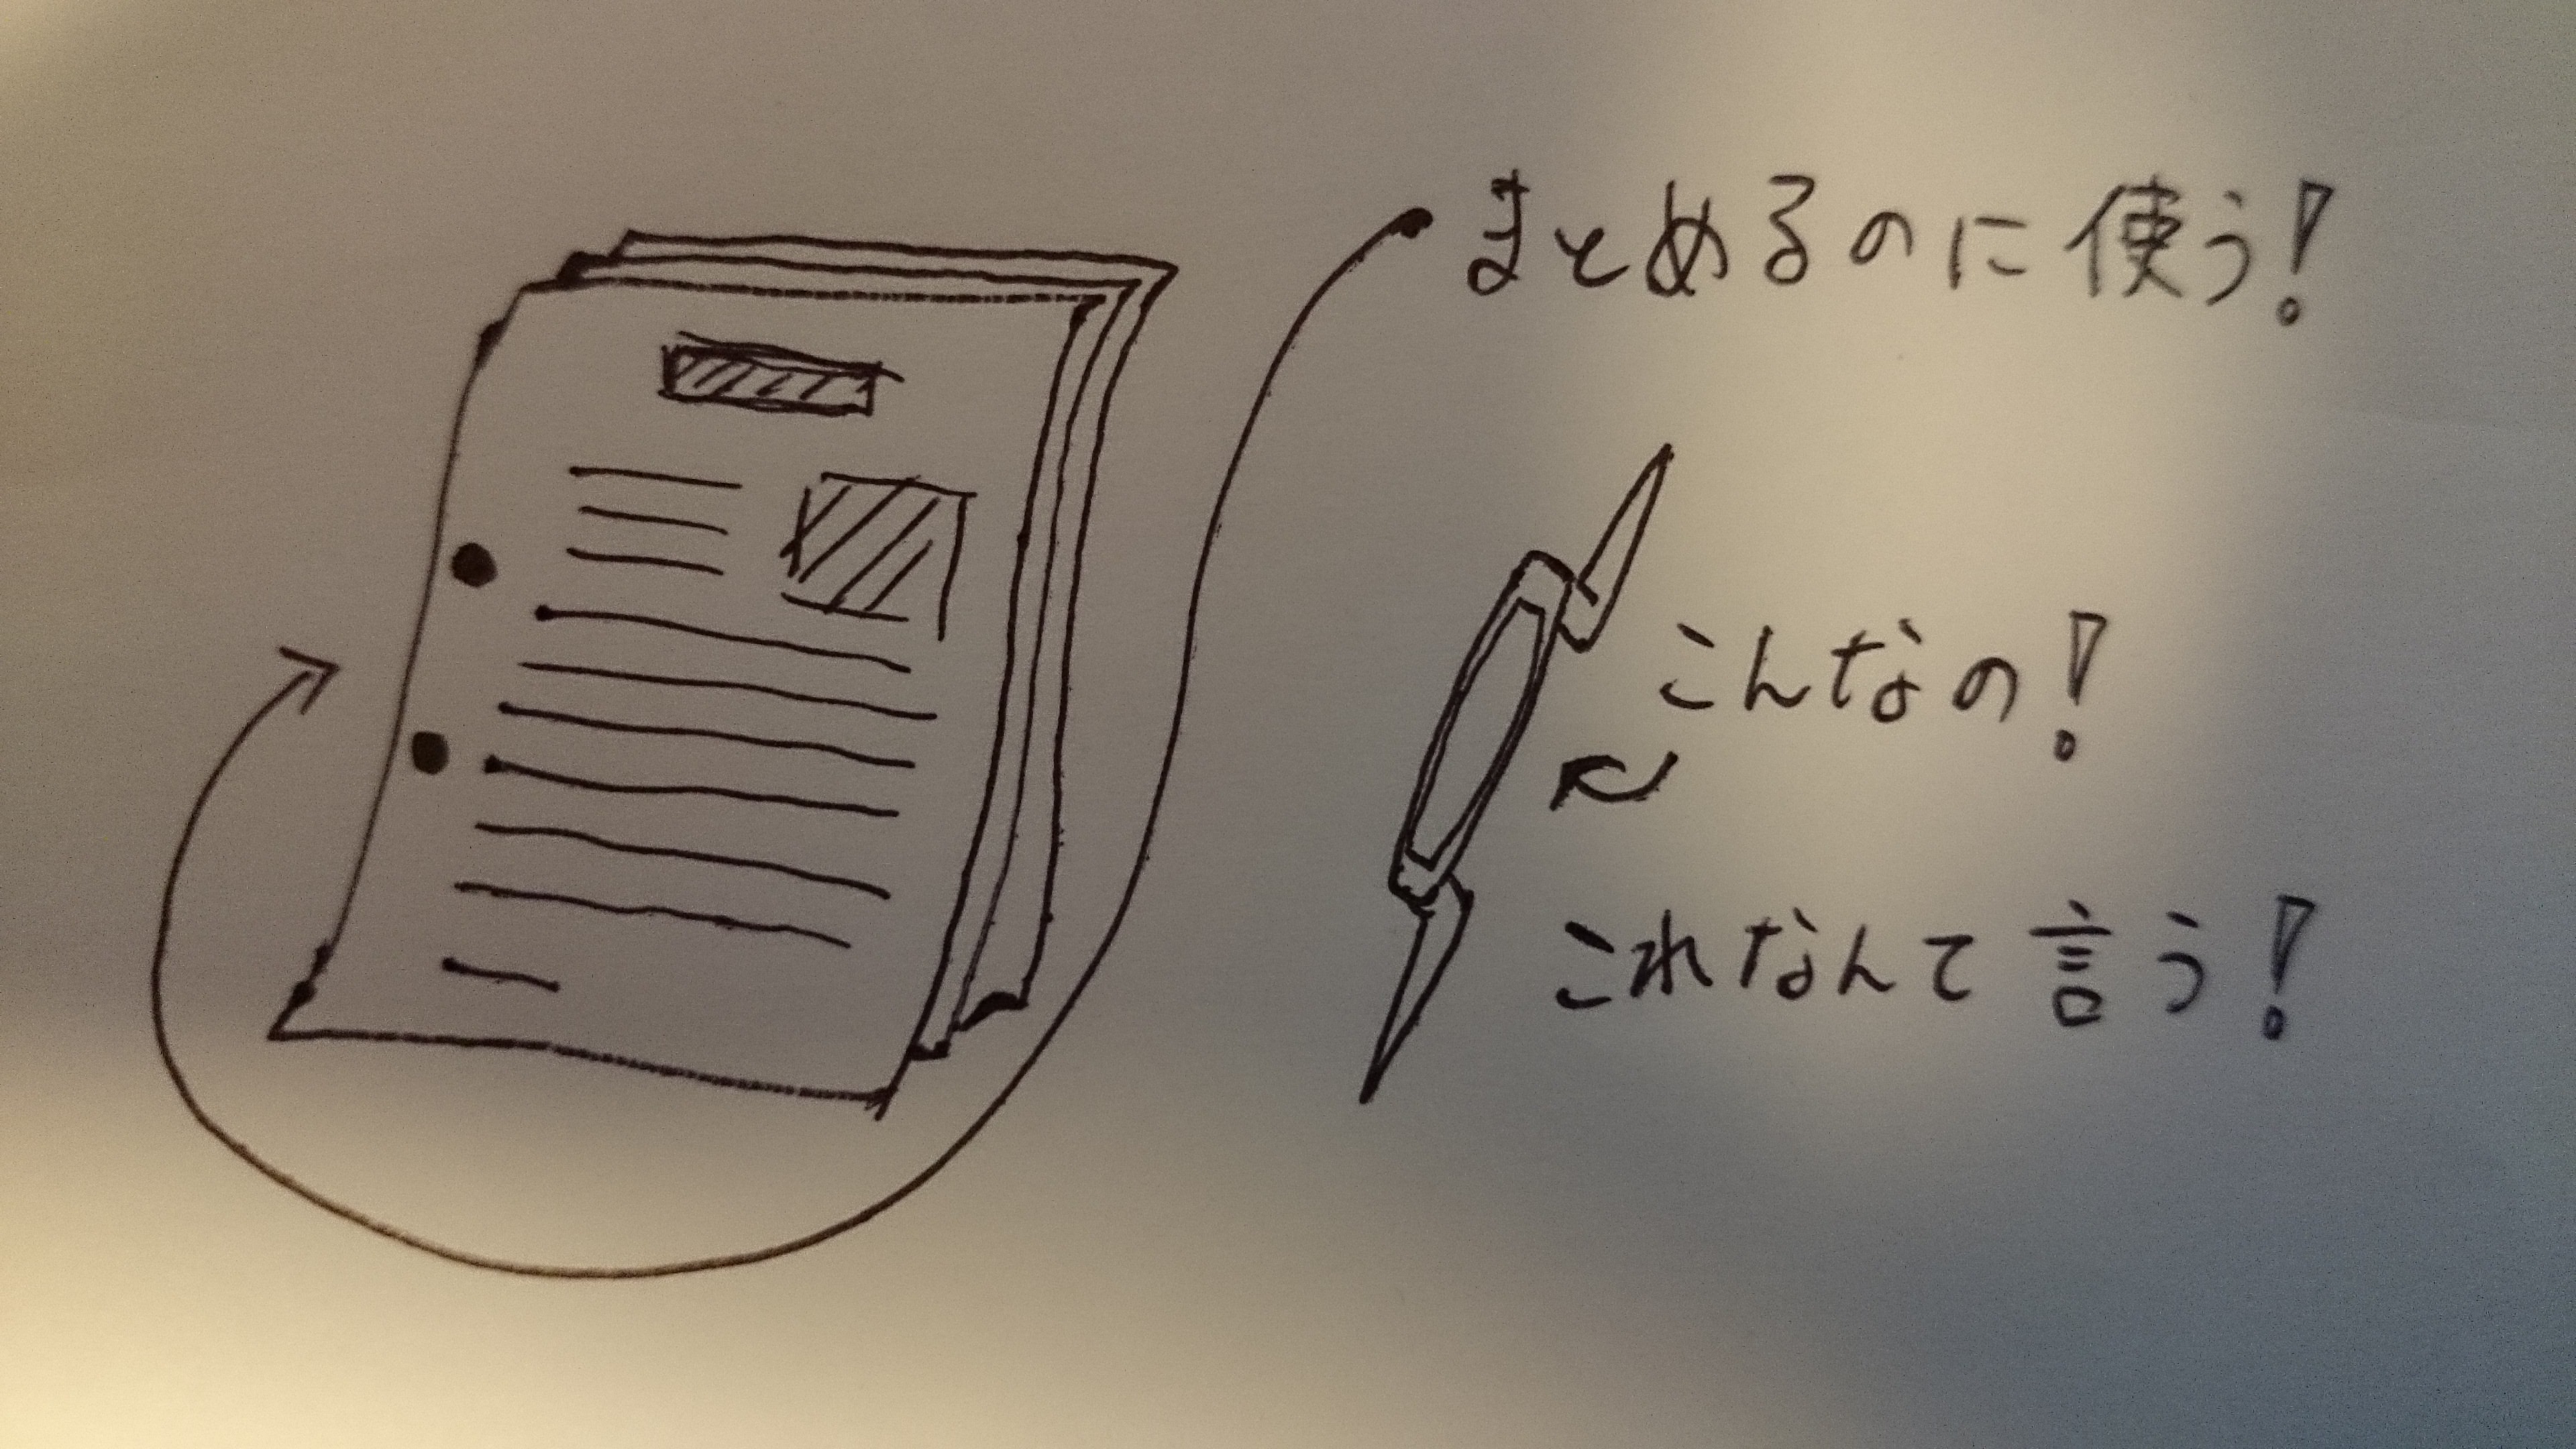 まとめるのに使う!
こんなの!
これなんて言う!